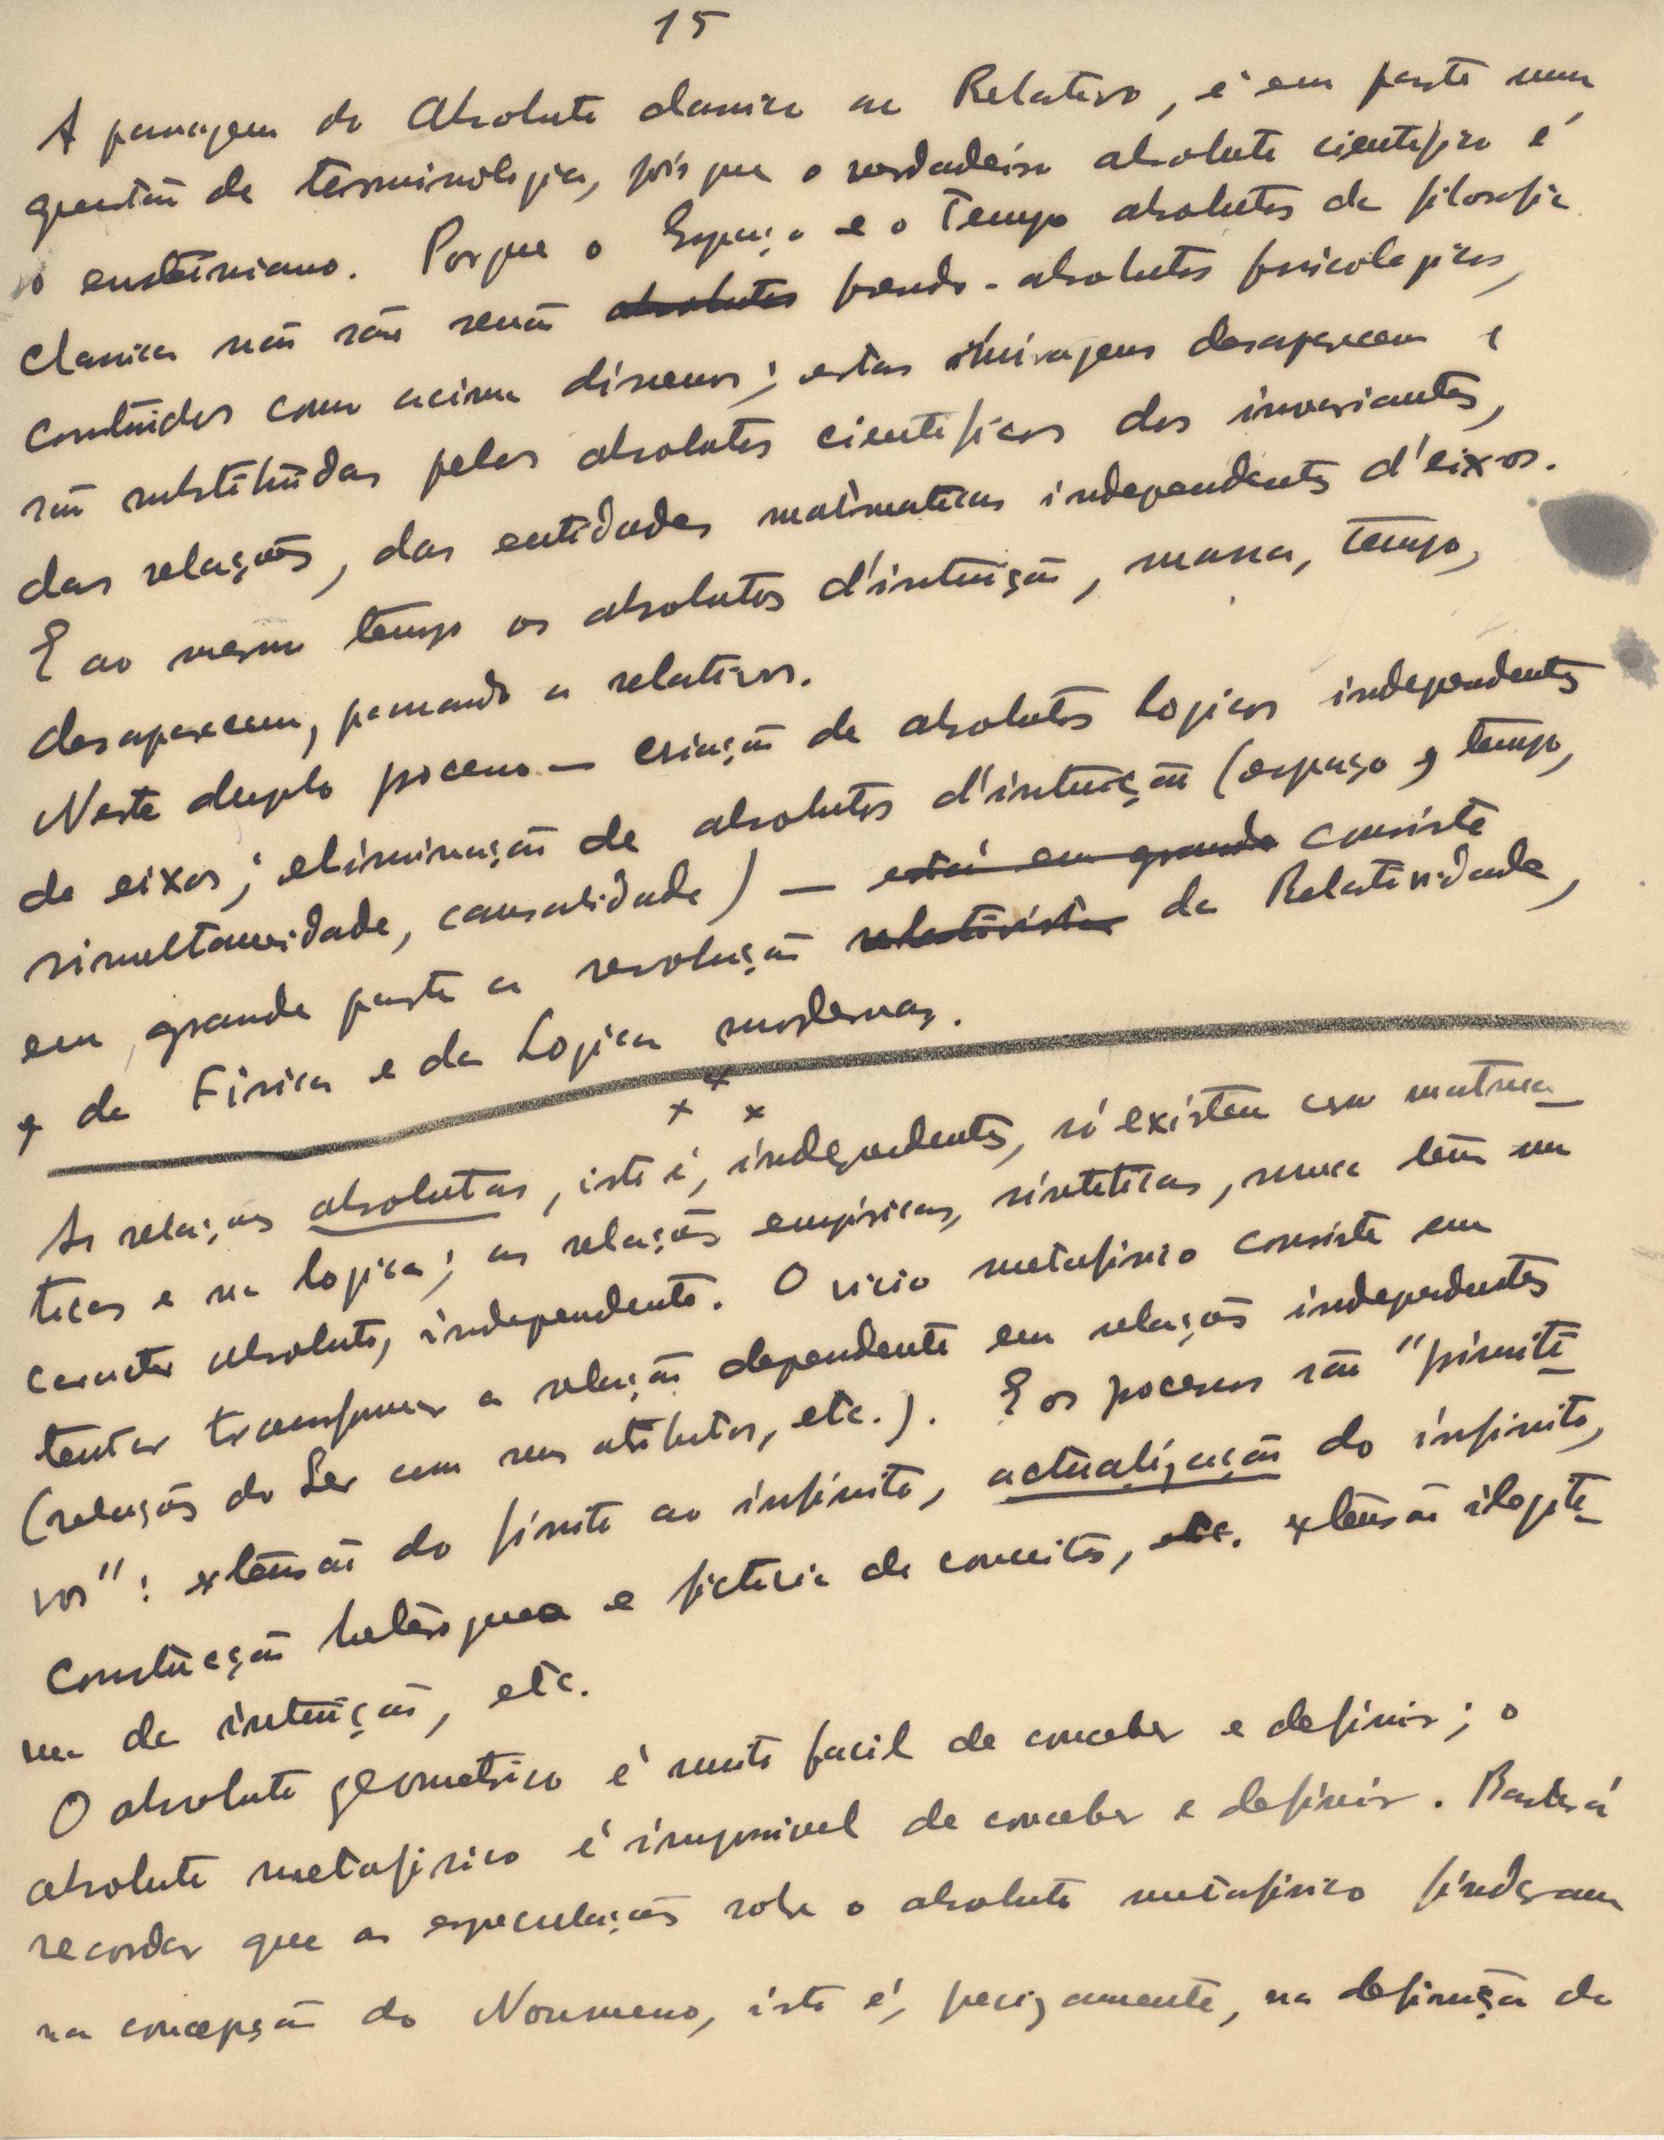 15
A passagem do Absoluto classico ao Relativo, é em parte uma
questão de terminologia, pois que o verdadeiro absoluto cientifico é
o ensteiniano. Porque o Espaço e o Tempo absolutos da filosofia
classica não são senão absolutos pseudo-absolutos psicologicos,
construidos como acima dissemos; estas miragens desaparecem e
são substituidas pelos absolutos cientificos dos invariantes,
das relações, das entidades matematicas independentes d'eixos.
E ao mesmo tempo os absolutos d'intuição, massa, tempo,
desaparecem, passando a relativos.
Neste duplo processo — criação de absolutos logicos independentes
de eixos; eliminação de absolutos d'intuição (espaço, tempo,
simultaneidade, causalidade) — está em grande consiste
em grande parte a revolução relativista da Relatividade,
e da Fisica e da Logica modernas.
x x x
As relações absolutas, isto é, independentes, só existem nas matema-
ticas e na logica; as relações empiricas, sinteticas, nunca têm um
caracter absoluto, independente. O vicio metafisico consiste em
tentar transformar a relação dependente em relações independentes
(relações do Ser com seus atributos, etc.). E os processos são "primiti-
vos": extensão do finito ao infinito, actualização do infinito,
construcção heterogenea e ficticia de conceitos, etc. extensão ilegiti-
ma da intuição, etc.
O absoluto geometrico é muito facil de conceber e definir; o
absoluto metafisico é impossivel de conceber e definir. Bastará
recordar que as especulações sobre o absoluto metafisico findaram
na concepção do Noumeno, isto é, precizamente, na definição do